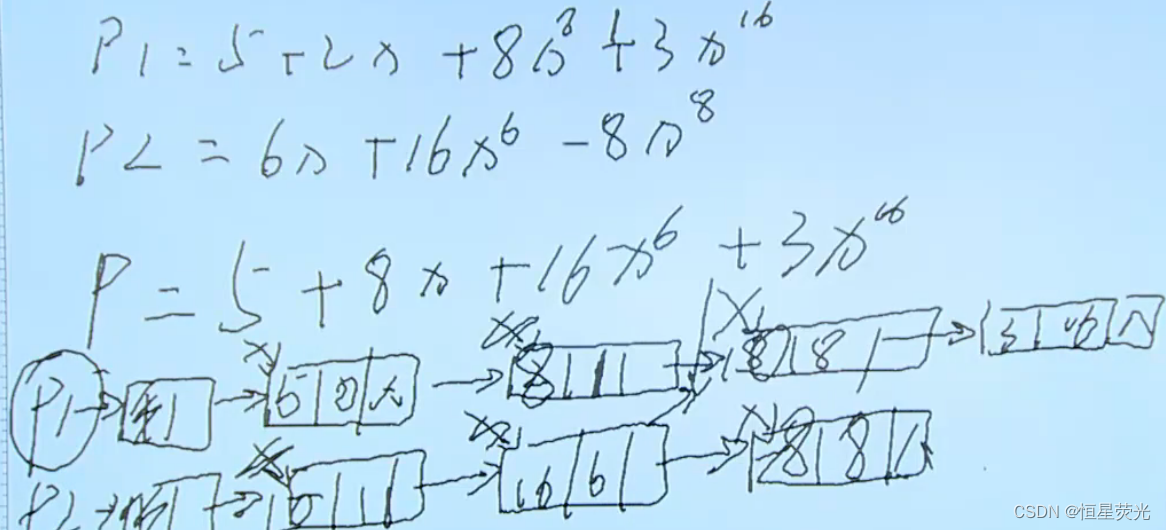 P1 = 5 + 2x + 8x^8 + 3x^16
P2 = 6x + 16x^6 - 8x^8
P = 5 + 8x + 16x^6 + 3x^16
P1 5 0 ^ 8 1 8 8 3 16 ^
P2 1 16 6 -8 8 ^
CSDN @恒星荧光